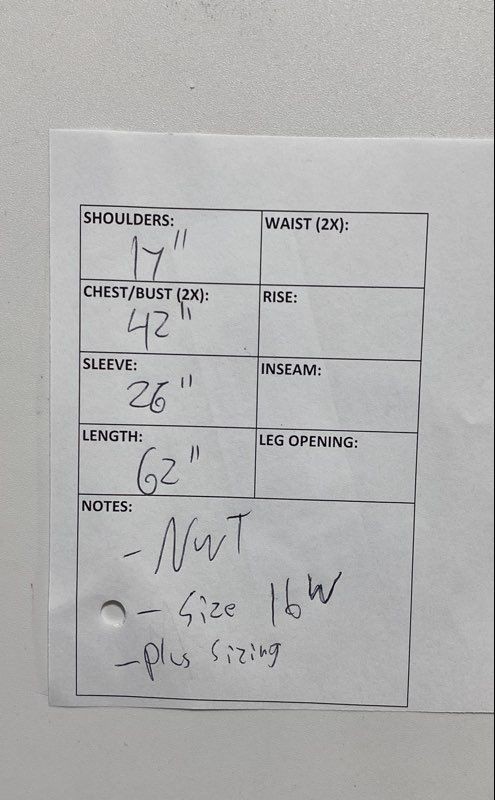 SHOULDERS:
17"
WAIST (2X):
CHEST/BUST (2X):
42"
RISE:
SLEEVE:
26"
INSEAM:
LENGTH:
62"
LEG OPENING:
NOTES:
- NWT
- Size 16W
- plus sizing